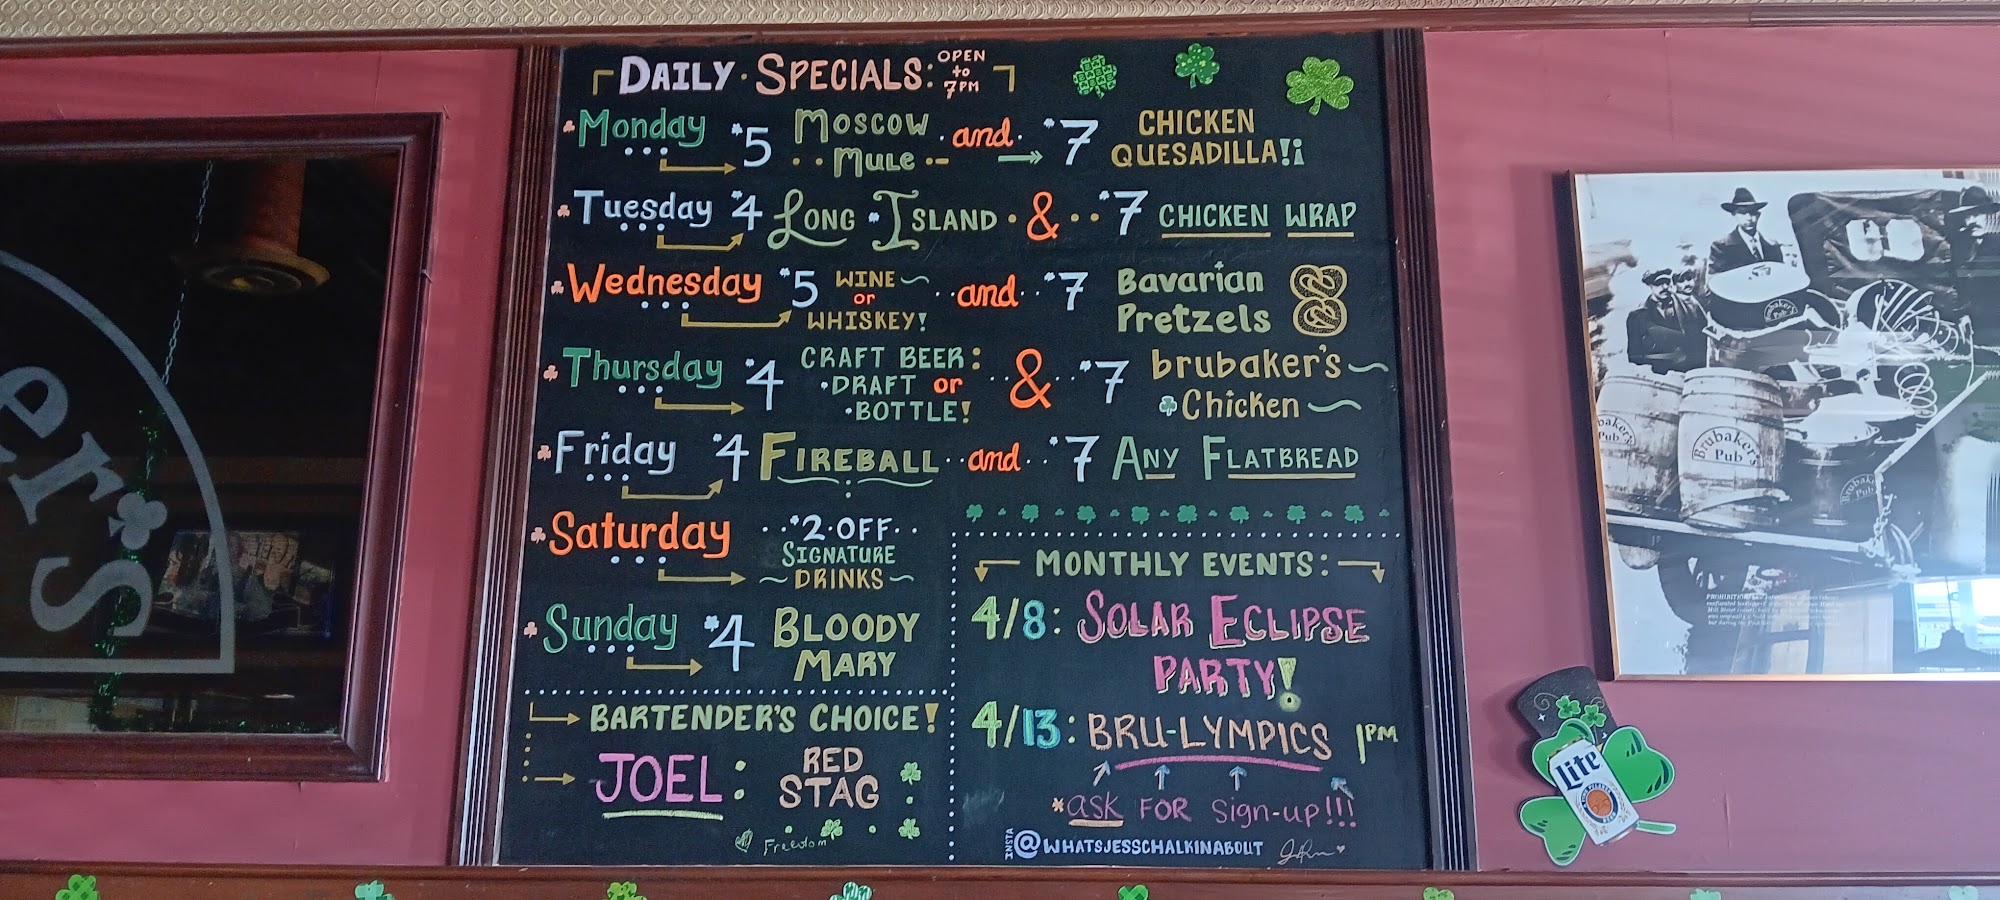 DAILY · SPECIALS: OPEN to 7PM
Monday $5 MOSCOW MULE and $7 CHICKEN QUESADILLA!¡
Tuesday $4 LONG ISLAND & $7 CHICKEN WRAP
Wednesday $5 WINE or WHISKEY! and $7 Bavarian Pretzels
Thursday $4 CRAFT BEER: DRAFT or BOTTLE! & $7 brubaker's Chicken
Friday $4 FIREBALL and $7 ANY FLATBREAD
Saturday $2 OFF SIGNATURE DRINKS
Sunday $4 BLOODY MARY
BARTENDER'S CHOICE!
JOEL: RED STAG
Freedom
MONTHLY EVENTS:
4/8: SOLAR ECLIPSE PARTY!
4/13: BRU-LYMPICS 1PM
*ask FOR sign-up!!!
INSTA @WHATSJESSCHALKINABOUT
er's
Brubaker's
Pub
Brubaker's
Pub
Pub
Brubaker's
Pub
PROHIBITION
Lite